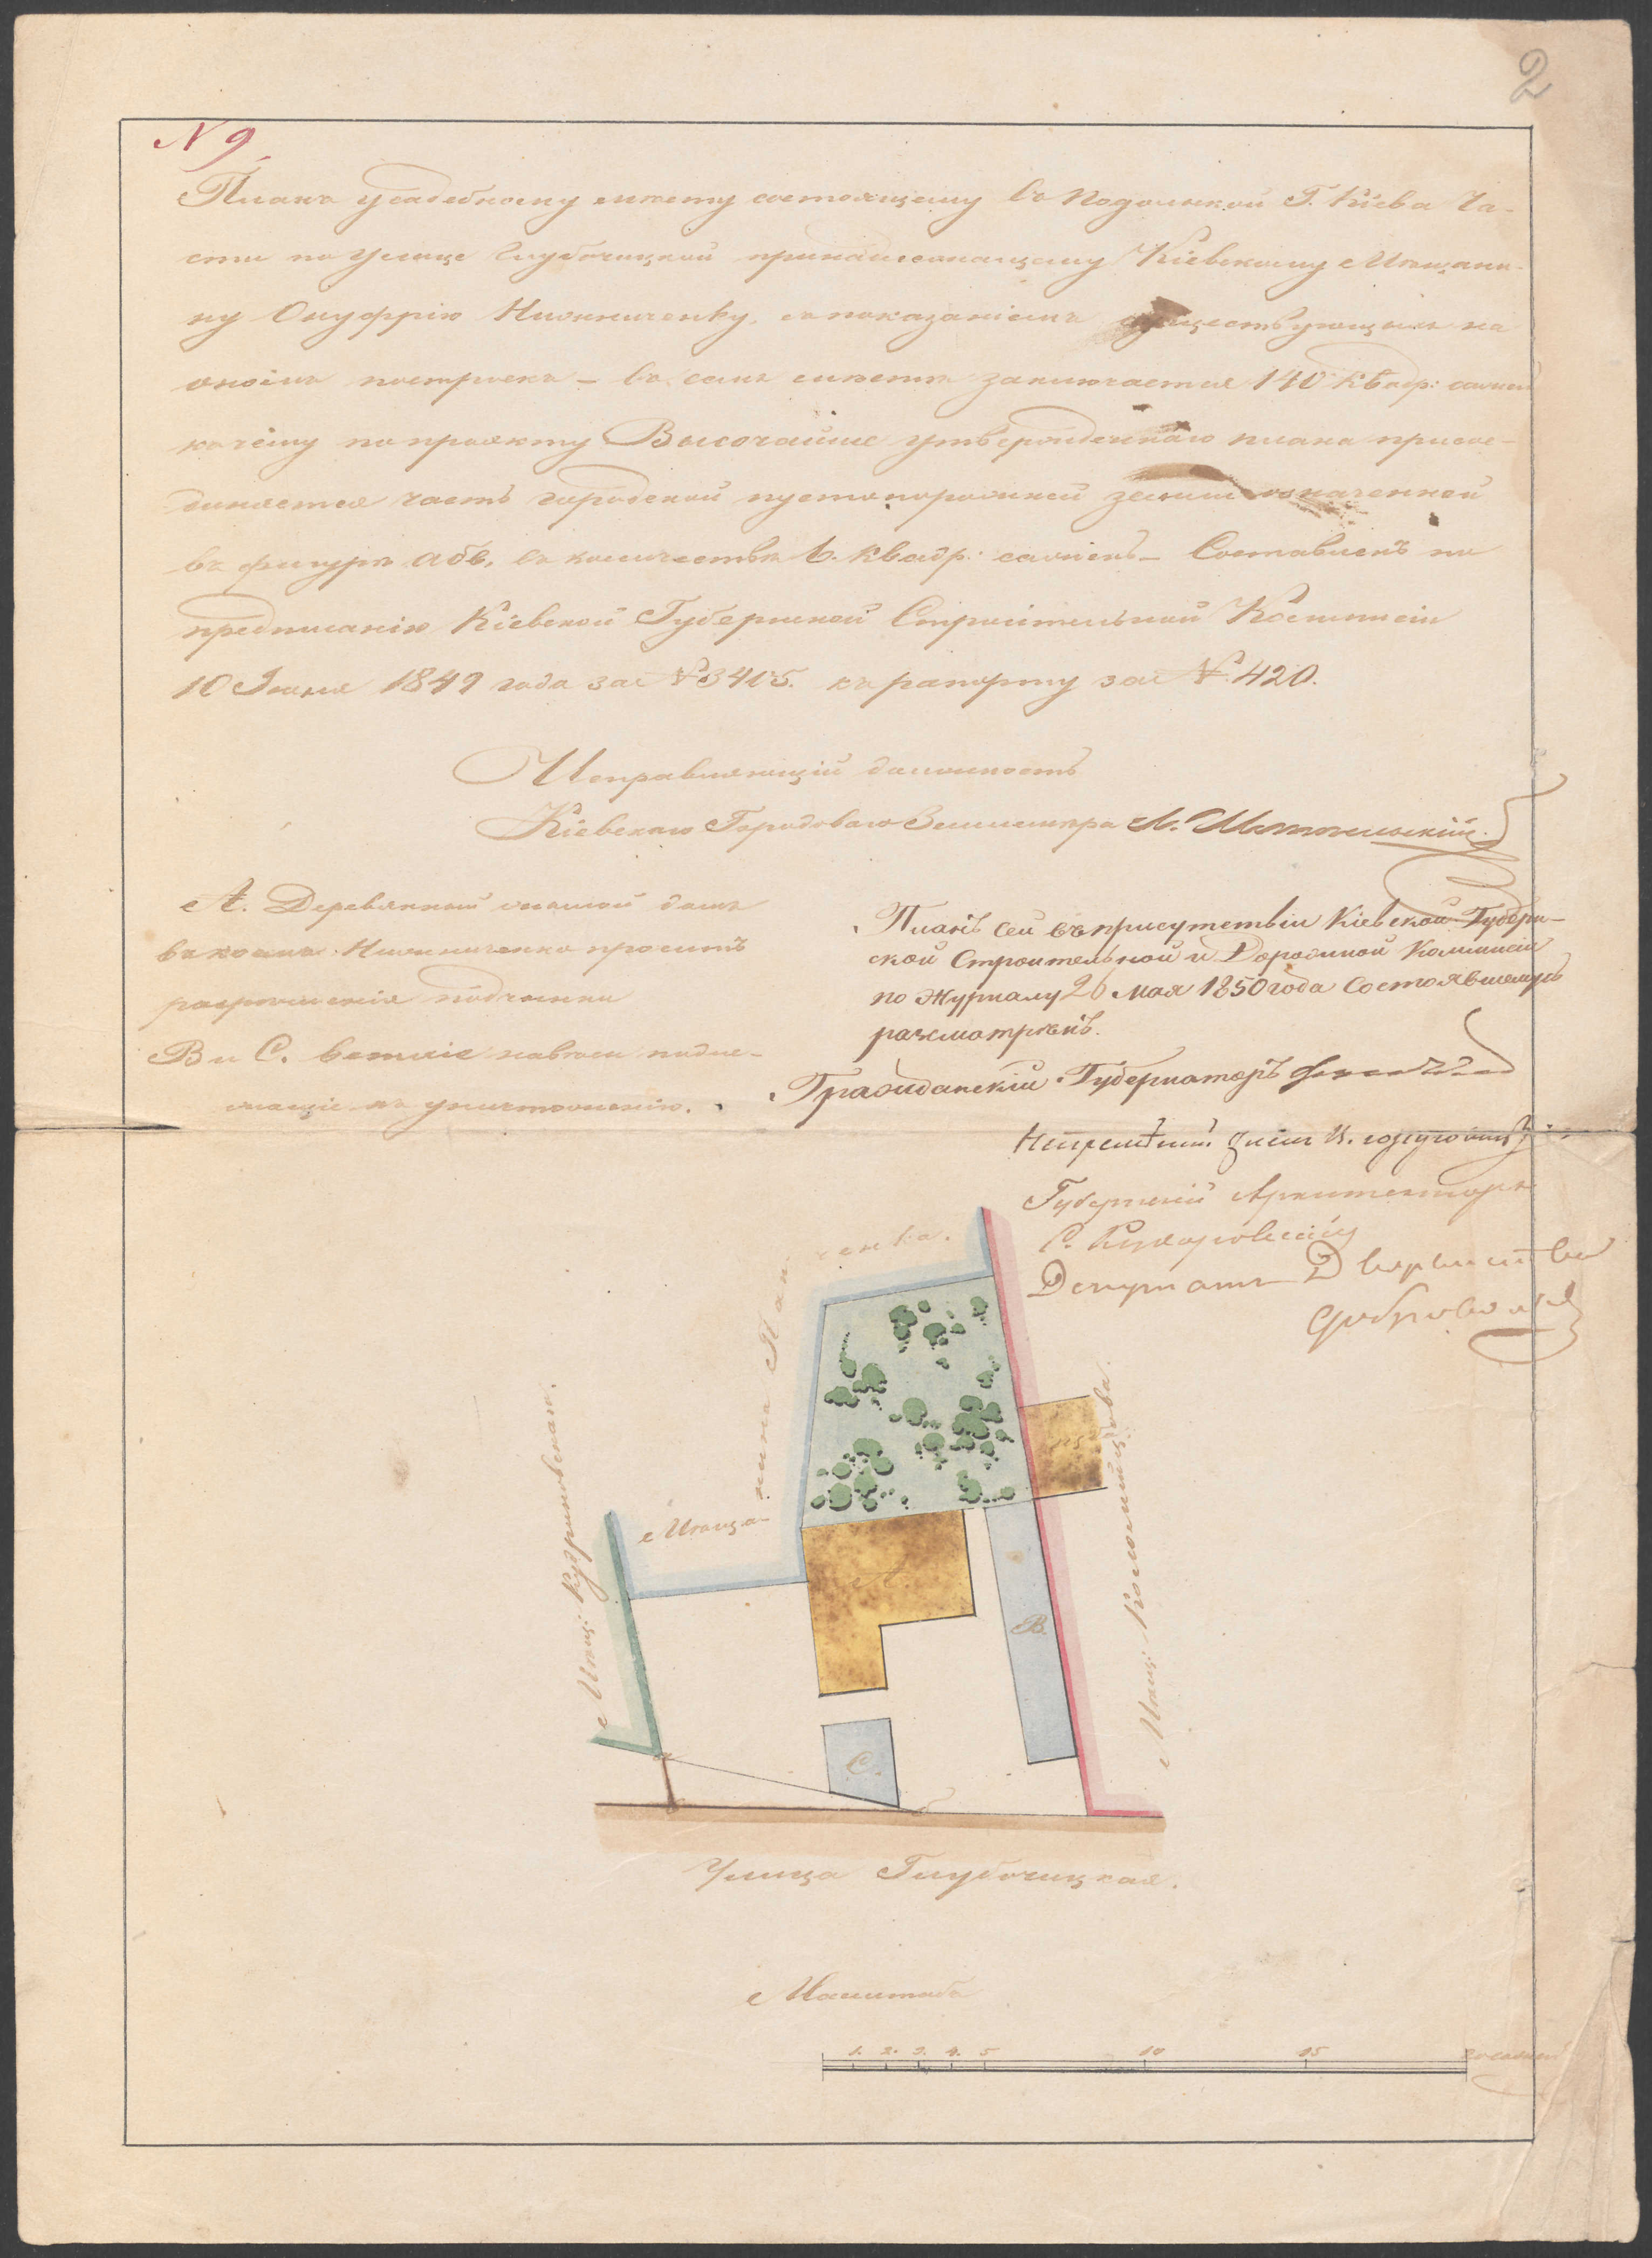 2
N 9.
Планъ усадебному мѣсту состоящему въ Подольской Г. Кіева Ча-
сти по улице Глубочицкой принадлежащему Кіевскому Мѣщани-
ну Онуфрію Нижниченку, съ показаніемъ существующихъ на
ономъ построекъ – въ семъ мѣстѣ заключается 140 квадр: сажней
къ чему по проэкту Высочайше утвержденнаго плана присое-
диняется часть городской пустопорожней земли означенной
въ фигурѣ абв, въ количествѣ 6. квадр: сажень – Составленъ по
предписанію Кіевской Губернской Строительной Коммисіи
10 Іюня 1849 года за № 3405. къ рапорту за № 420.
Исправляющій должность
Кіевскаго Городоваго Землемѣра
А. Деревянный жилой домъ
въ коемъ Нижниченко проситъ
разрешенія починки
В и С. ветхіе навѣсы подле-
жащіе къ уничтоженію.
Планъ сей въ присутствіи Кіевской Губерн-
ской Строительной и Дорожной Коммисіи
по Журналу 26 Мая 1850 года Состоявшемуся
разсмотрѣнъ.
Гражданскій Губернаторъ
Непремѣнный Членъ
Губернскій Архитекторъ
Депутатъ Дворянства
Мѣщанина Панченка.
Мѣщ: Кудриновскаго.
Мѣщ: Коломийцова.
А
В.
С.
Улица Глубочицкая.
Масштабъ
1. 2. 3. 4. 5 10 15 20 сажней